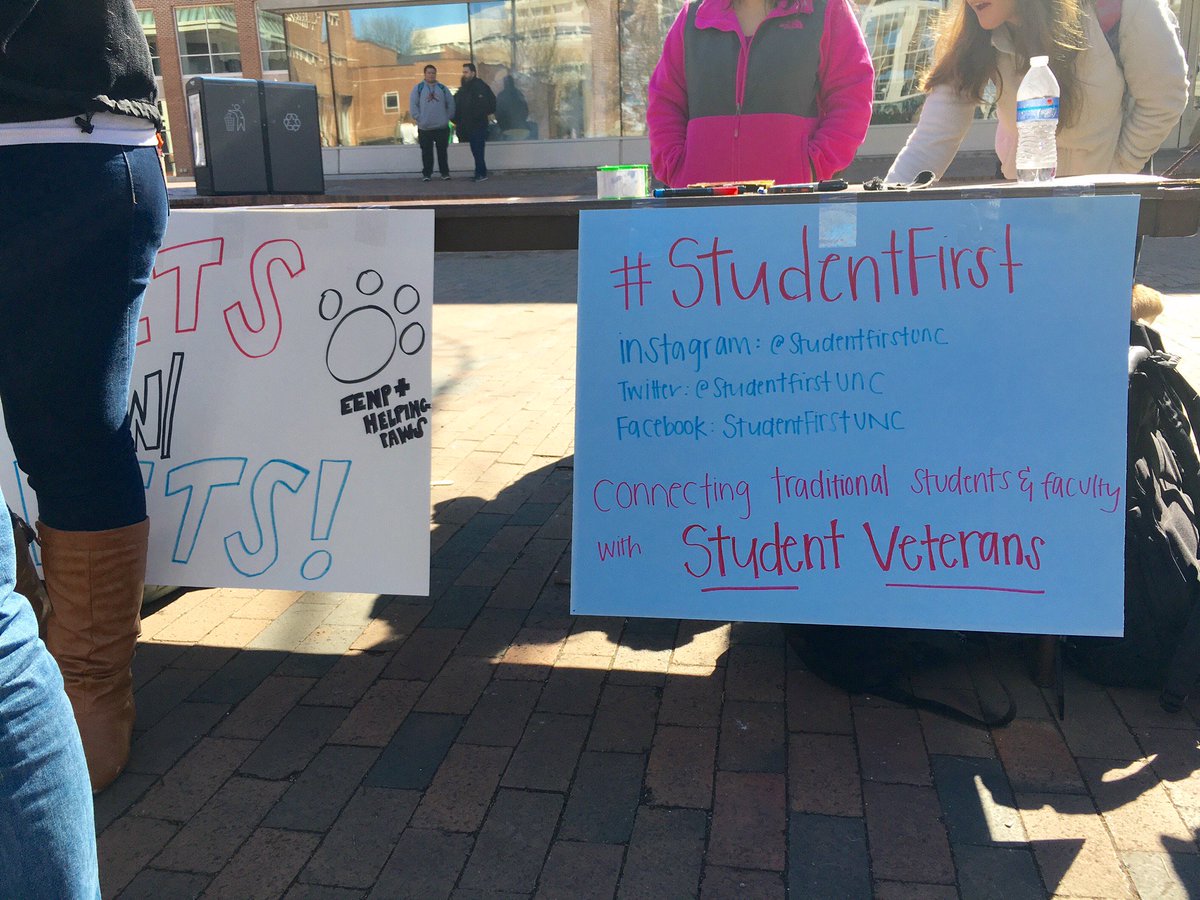 TS
W/
TS!
EENP +
HELPING
PAWS
#StudentFirst
instagram: @StudentfirstUNC
Twitter: @StudentfirstUNC
Facebook: StudentFirstUNC
Connecting traditional students & faculty
with Student Veterans